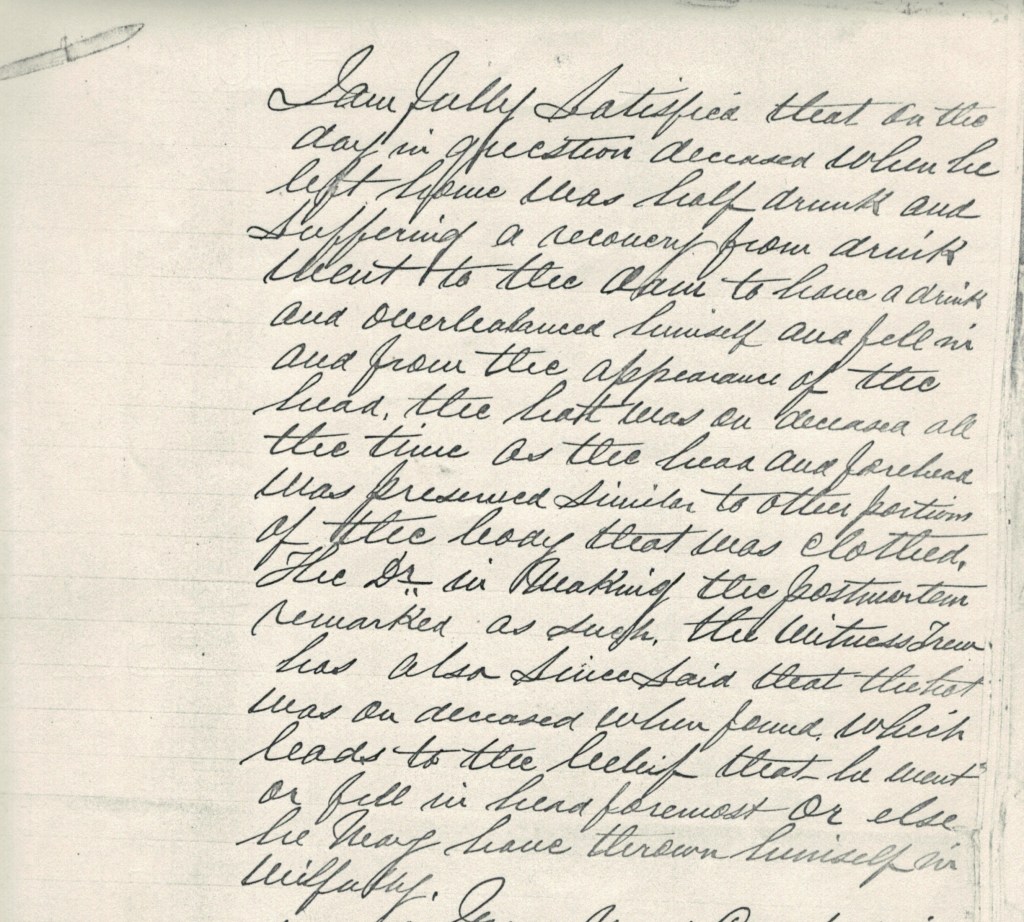 I am fully satisfied that on the
day in question deceased when he
left home was half drunk and
suffering a recovery from drink
went to the dam to have a drink
and overbalanced himself and fell in
and from the appearance of the
head, the hat was on deceased all
the time as the head and forehead
was preserved similar to other portions
of the body that was clothed.
The Dr. in making the postmortem
remarked as such, the witness
has also since said that the hat
was on deceased when found, which
leads to the belief that he went
or fell in head foremost or else
he may have thrown himself in
wilfully.